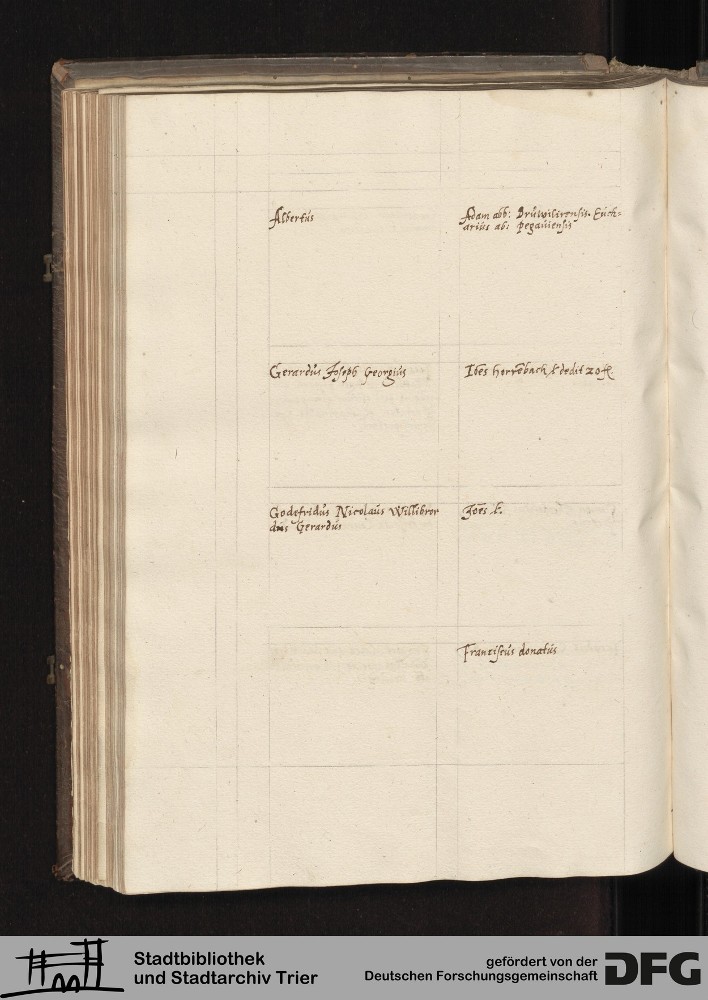 Albertus
Adam abb: Bruwilirensis. Euch=
arius ab: pegauiensis
Gerardus Joseph Georgius
dedit 20
Godefridus Nicolaus Willibror
dus Gerardus
Joēs
Franciscus donatus
Stadtbibliothek
und Stadtarchiv Trier
gefördert von der
Deutschen Forschungsgemeinschaft
DFG